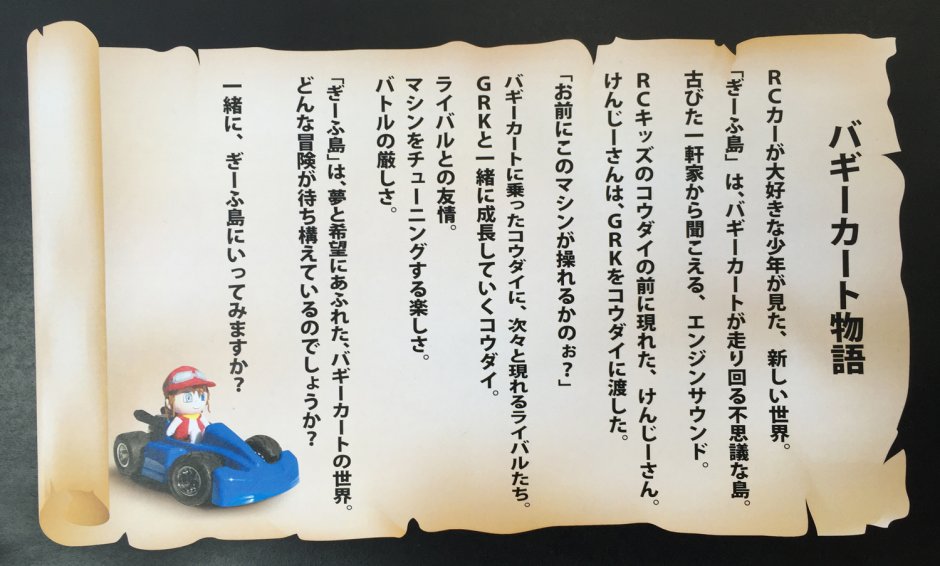 バギーカート物語
RCカーが大好きな少年が見た、新しい世界。
「ぎーふ島」は、バギーカートが走り回る不思議な島。
古びた一軒家から聞こえる、エンジンサウンド。
RCキッズのコウダイの前に現れた、けんじーさん。
けんじーさんは、GRKをコウダイに渡した。
「お前にこのマシンが操れるかのぉ？」
バギーカートに乗ったコウダイに、次々と現れるライバルたち。
GRKと一緒に成長していくコウダイ。
ライバルとの友情。
マシンをチューニングする楽しさ。
バトルの厳しさ。
「ぎーふ島」は、夢と希望にあふれた、バギーカートの世界。
どんな冒険が待ち構えているのでしょうか？
一緒に、ぎーふ島にいってみますか？